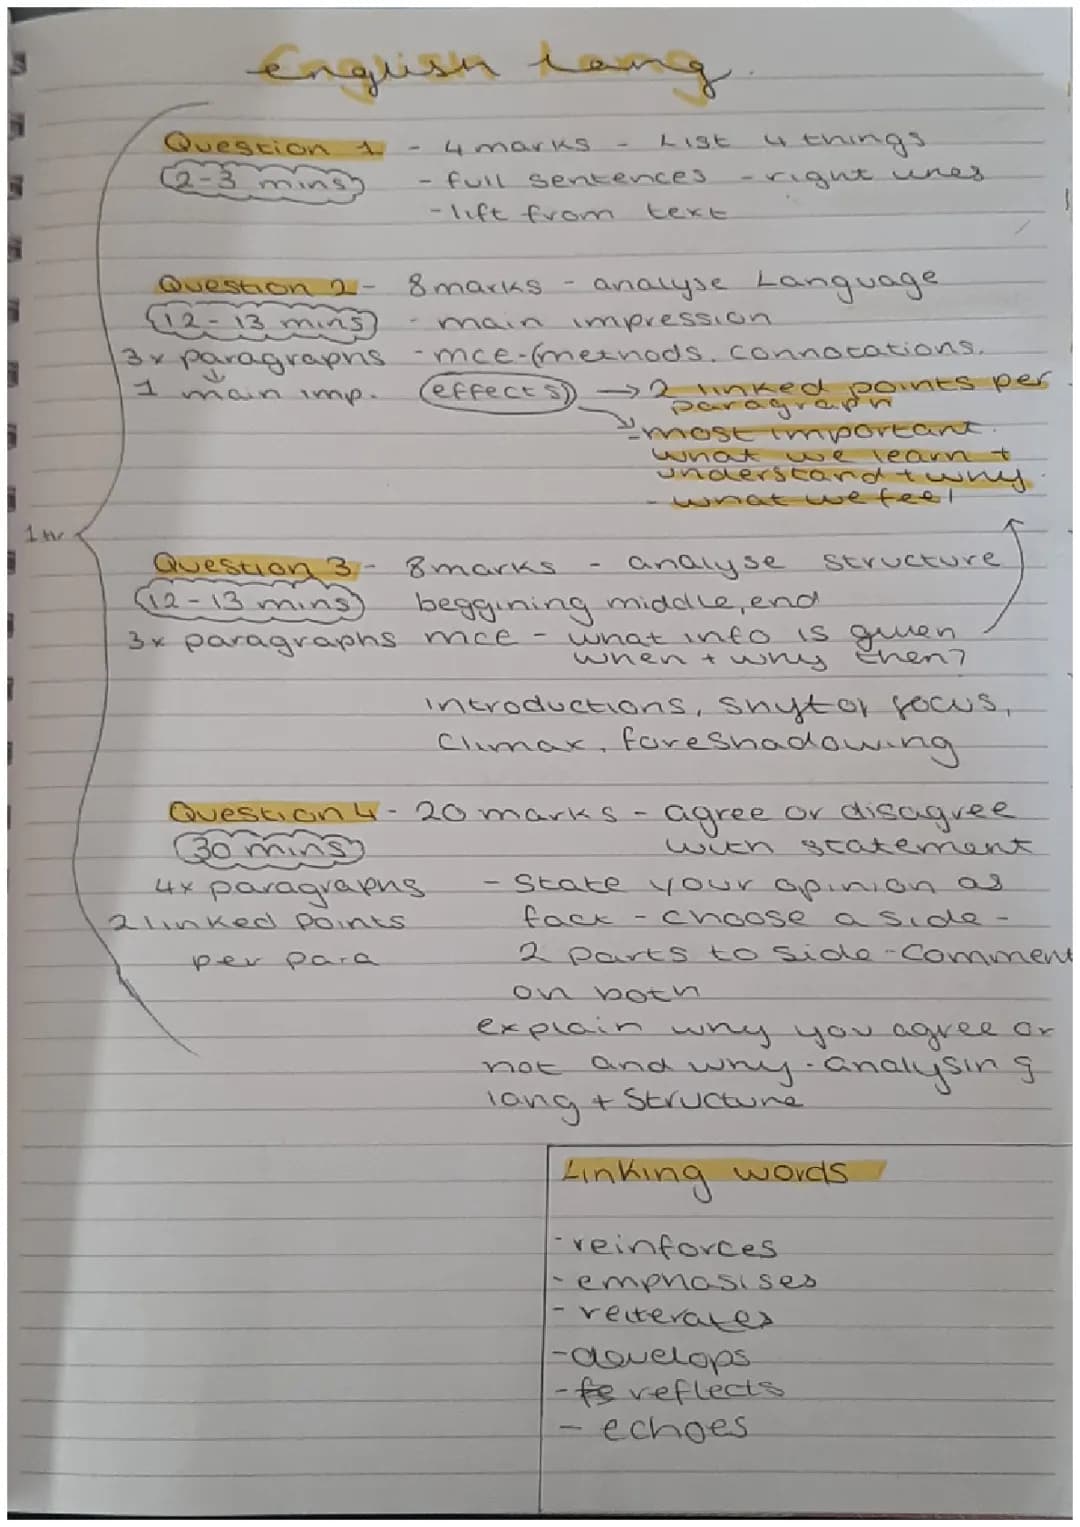 English Lang.
Question 1 - 4 marks - List 4 things
(2-3 mins) - full sentences - right lines
- lift from text
Question 2 - 8 marks - analyse Language
(12-13 mins) - main impression
3x paragraphs - mce - (methods, connotations,
1 main imp. (effects)) → 2 linked points per
paragraph
- most important.
what we learn +
understand + why.
- what we feel
1 hr
Question 3 - 8 marks - analyse structure
(12-13 mins) beggining middle, end
3x paragraphs mce - what info is given
when + why then?
introductions, shyt of focus,
Climax, foreshadowing
Question 4 - 20 marks - agree or disagree
(30 mins) with statement
4x paragraphs - State your opinion as
2 linked points fact - choose a side -
per para 2 parts to side - Comment
on both
explain why you agree or
not and why. analysing
lang + Structure
Linking words
- reinforces
- emphasises
- reiterates
- develops
- reflects
- echoes